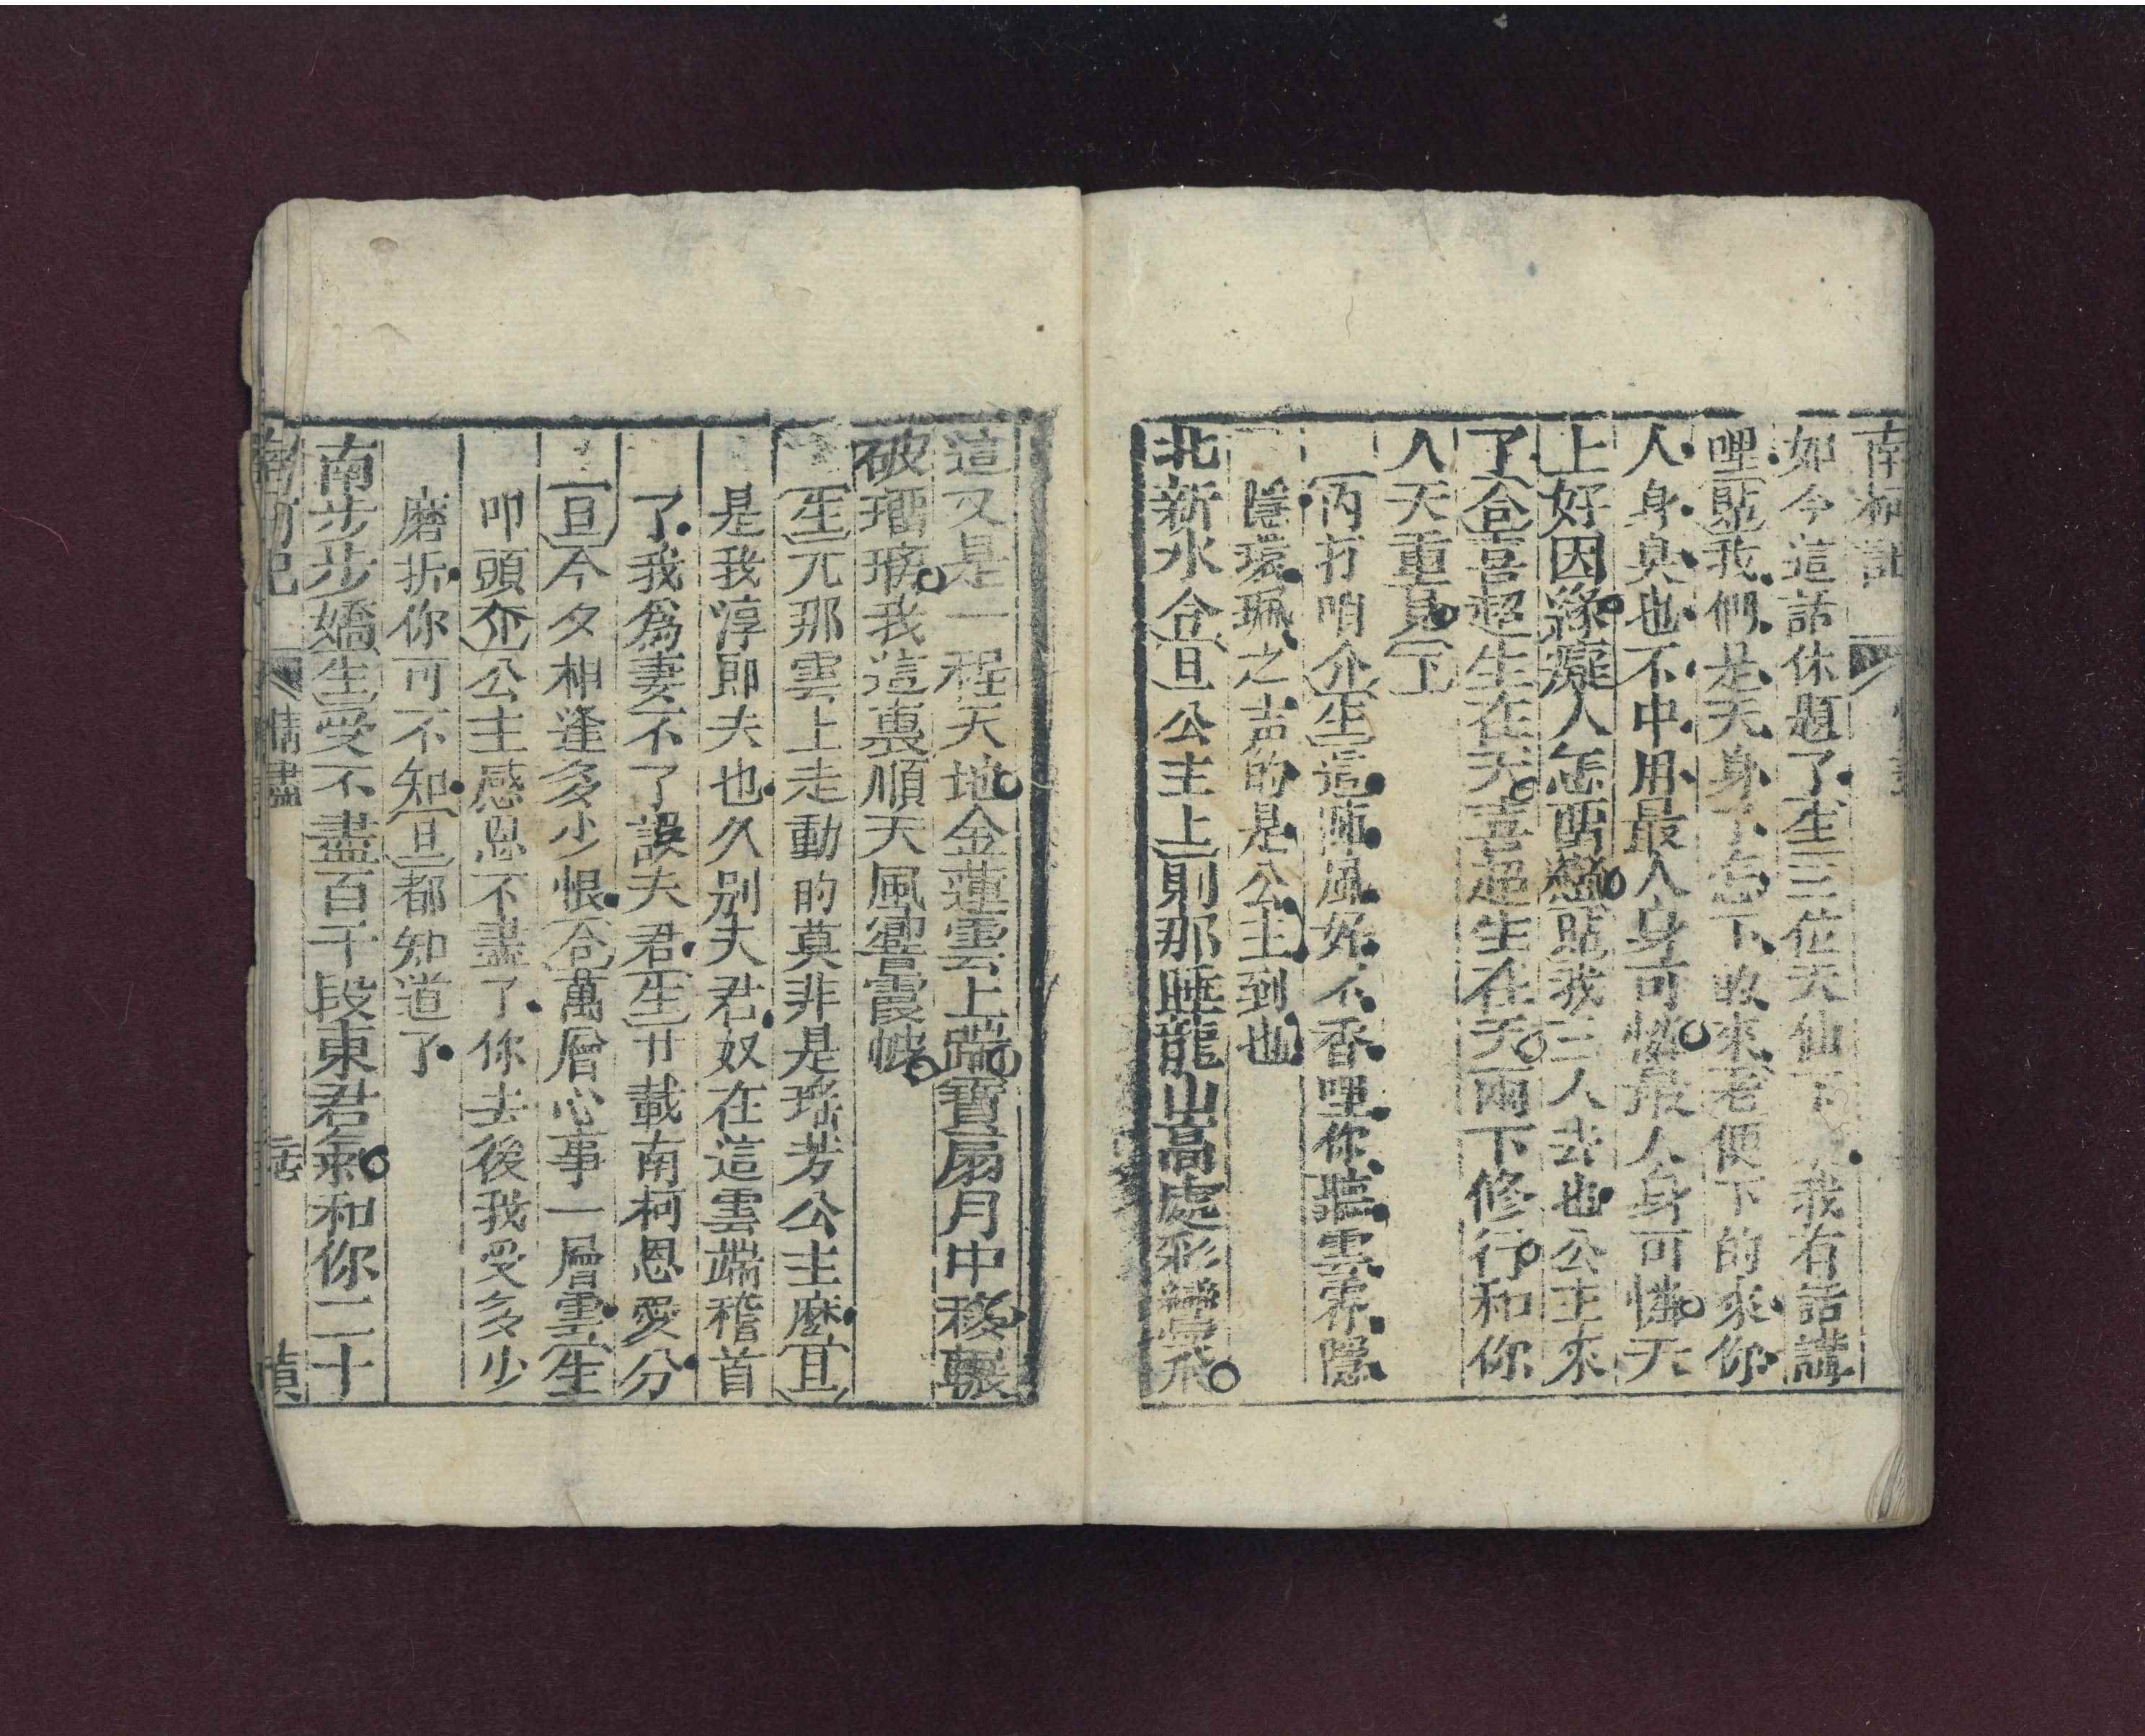 南柯記
如今這話休題了生三位天仙下我有話講
哩貼我們是天身了怎下的來老便下的來你
人身臭也不中用最人身可憐最人身可憐天
上好因緣癡人怎酉貼我三人去也公主來
了合喜超生在天喜超生在天兩下修行和你
人天重見下
內打咱介生這陣風好不香哩你聽雲霄隱
隱環珮之声的是公主到也
北新水令旦公主上則那睡龍山高處彩鸞飛
這又是一程天地金蓮雲上踹寶扇月中移輾
破瑠璃我這裏順天風響霞帔
生兀那雲上走動的莫非是瑤芳公主麽旦
是我淳郎夫也久别夫君奴在這雲端稽首
了我為妻不了誤夫君生廿載南柯恩愛分
旦今夕相逢多少恨合萬層心事一層雲生
叩頭介公主感恩不盡了你去後我受多少
磨折你可不知旦都知道了
南步步嬌生受不盡百千段東君氣和你二十
南柯記 情盡 貞